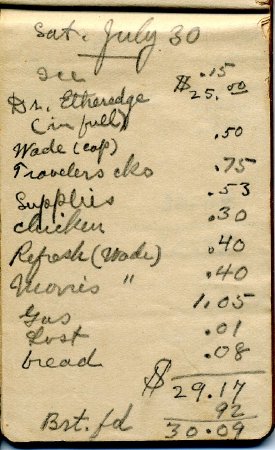 Sat. July 30
Ice $ .15
Dr. Etheredge 25.00
(in full)
Wade (cap) .50
Travelers cks .75
Supplies .53
chicken .30
Refresh (Wade) .40
Movies " .40
Gas 1.05
Lost .01
bread .08
$ 29.17
Brt. fd 92
30.09